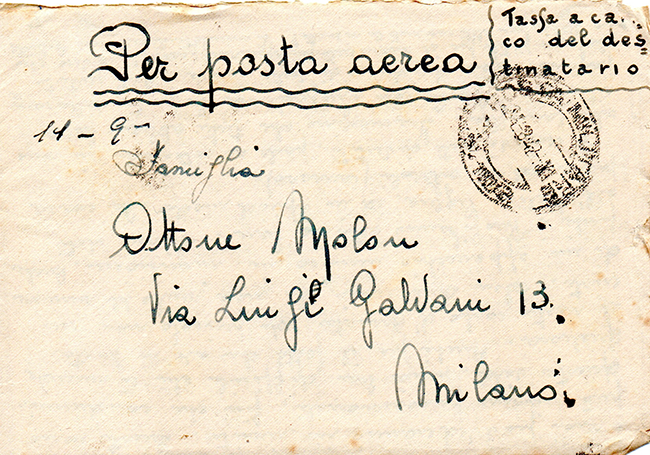 Per posta aerea
Tassa a cari=
co del des=
tinatario
11-9-
Famiglia
Ottone Molon
Via Luigi Galvani 13.
Milano.